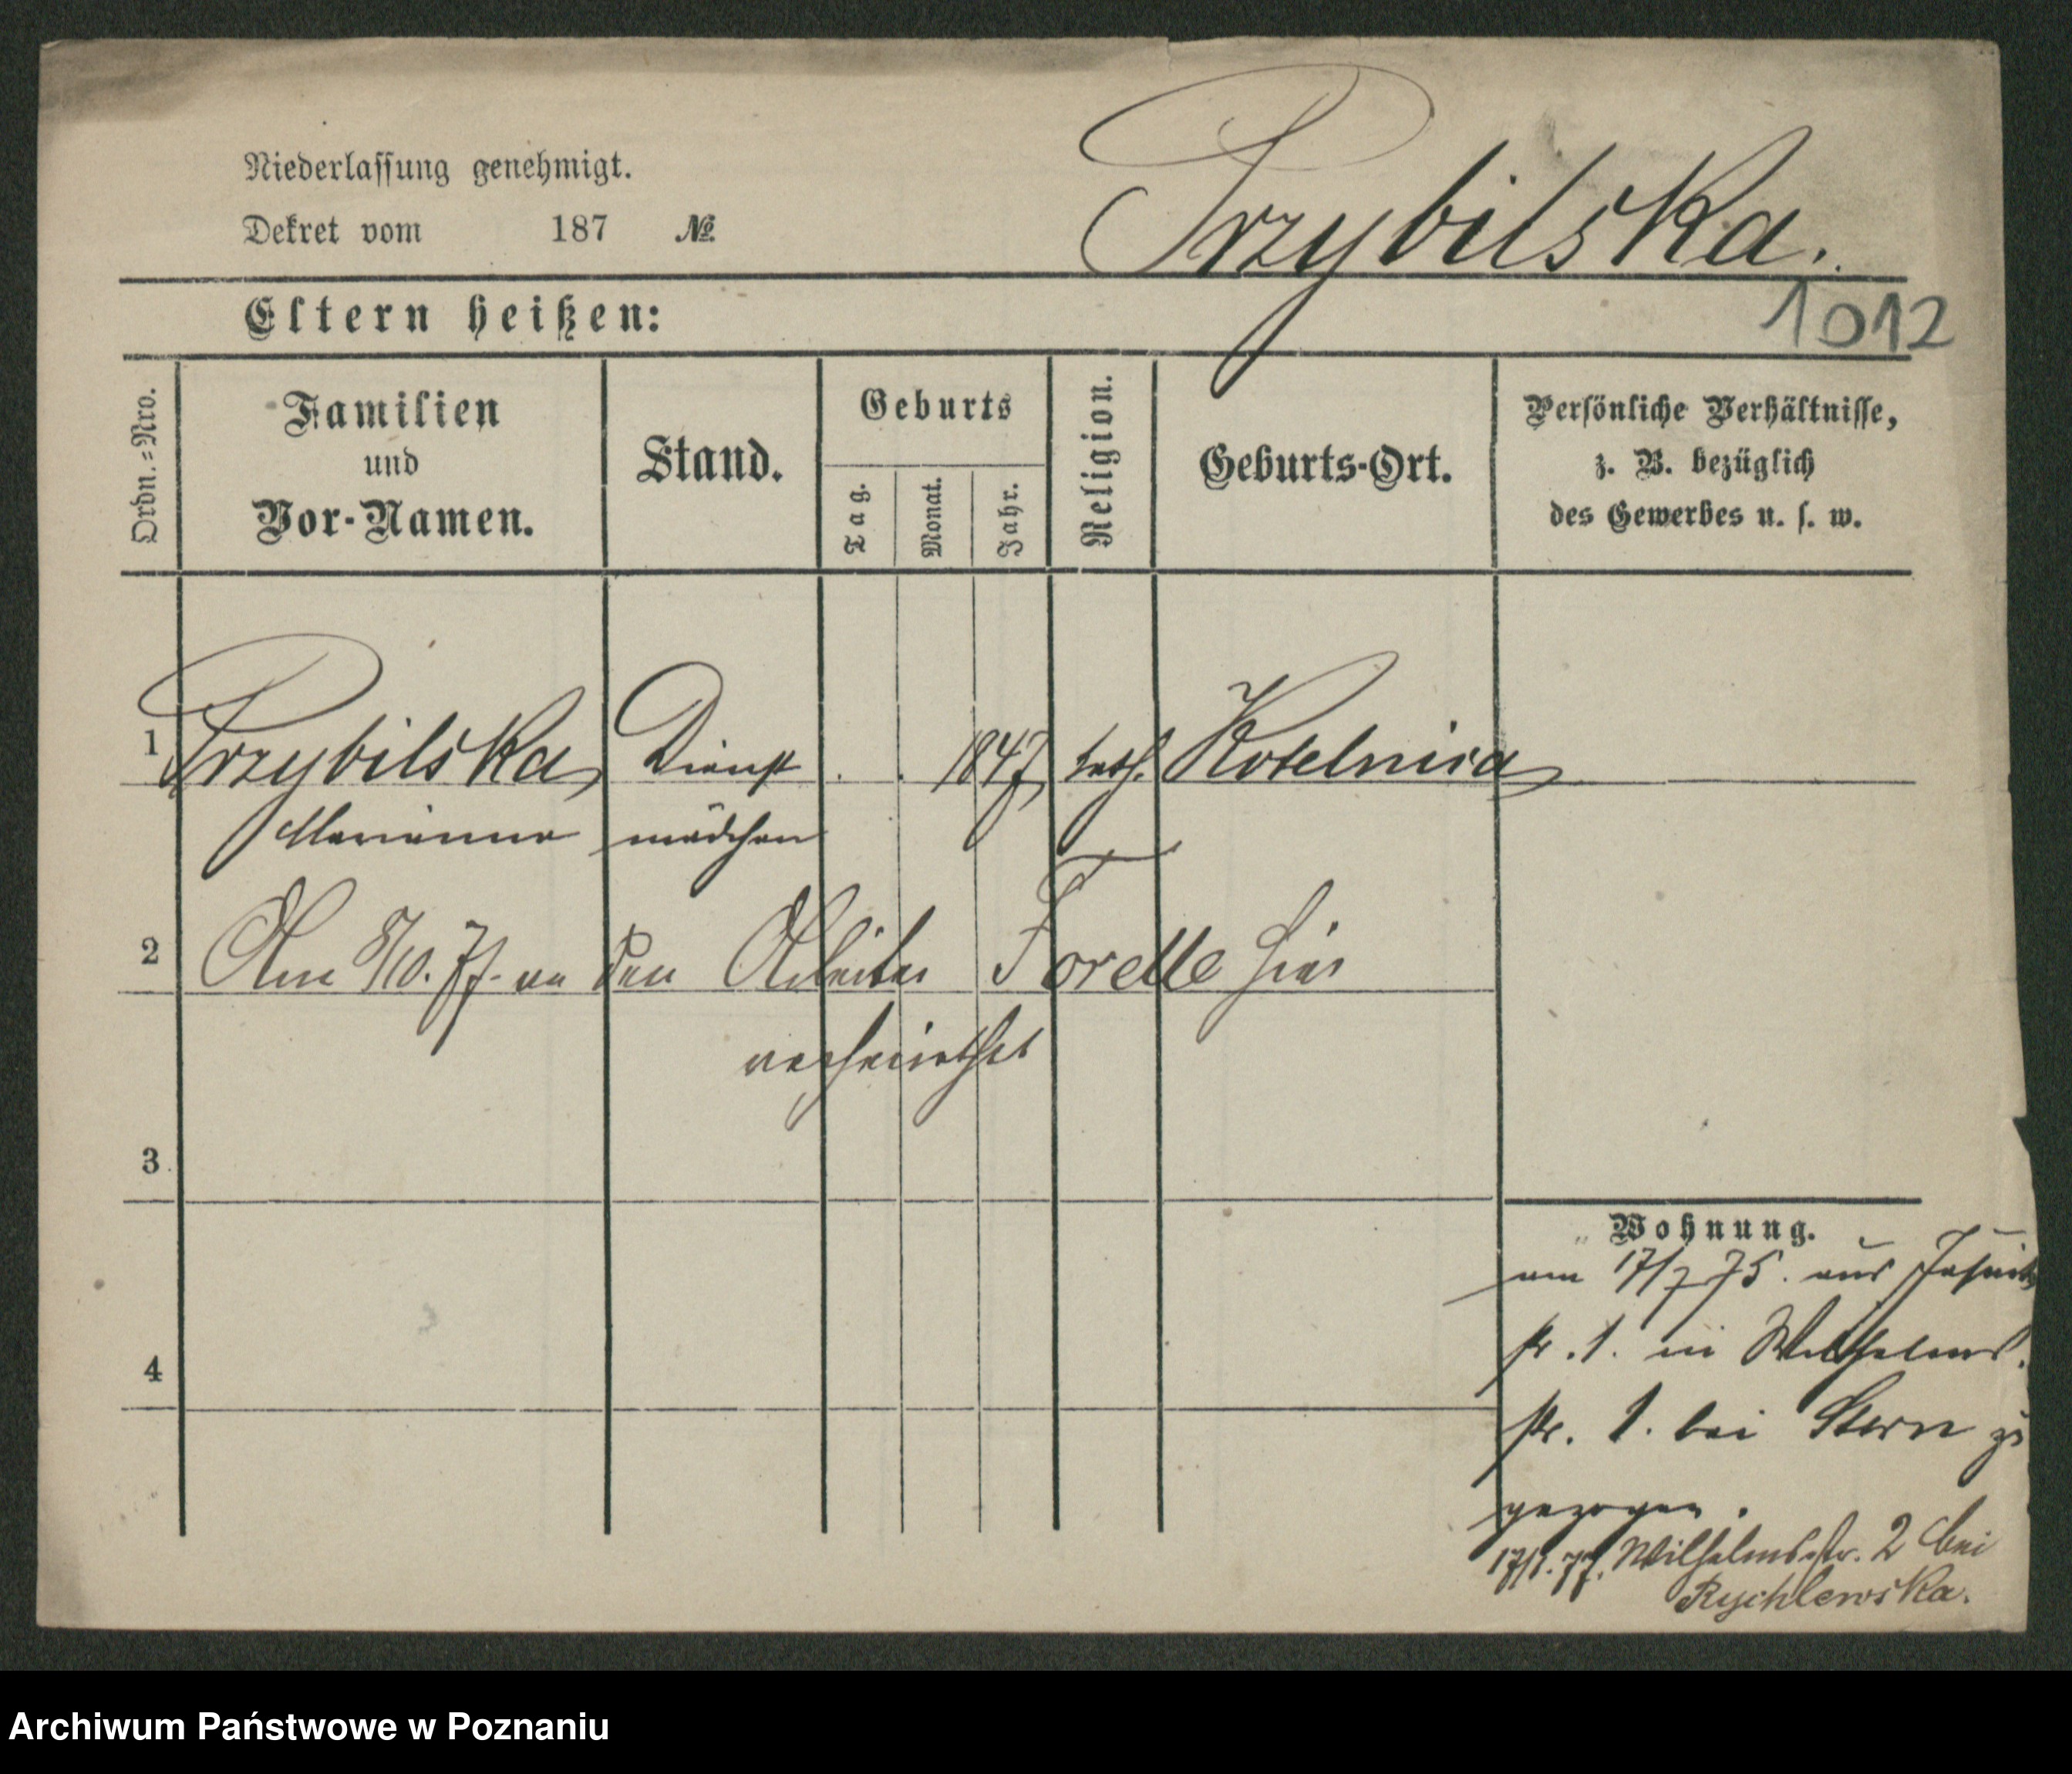 Niederlassung genehmigt.
Dekret vom 187 №
Przybilska.
Eltern heißen:
1012
Ordn.=Nro.
Familien
und
Vor-Namen.
Stand.
Geburts
Tag.
Monat.
Jahr.
Religion.
Geburts-Ort.
Persönliche Verhältnisse,
z. B. bezüglich
des Gewerbes u. s. w.
1 Przybilska Dienst . . 1847 kath. Kotelnica
Marianna mädchen
2 Am 8/10. 77. an den Arbeiter Forelle hier
verheirathet
3
4
Wohnung.
am 17/7 75. aus Jesuit
str. 1. in Wilhelms.
str. 1. bei Stern
gezogen.
17/1. 77. Wilhelmsstr. 2 bei
Rychlewska.
Archiwum Państwowe w Poznaniu